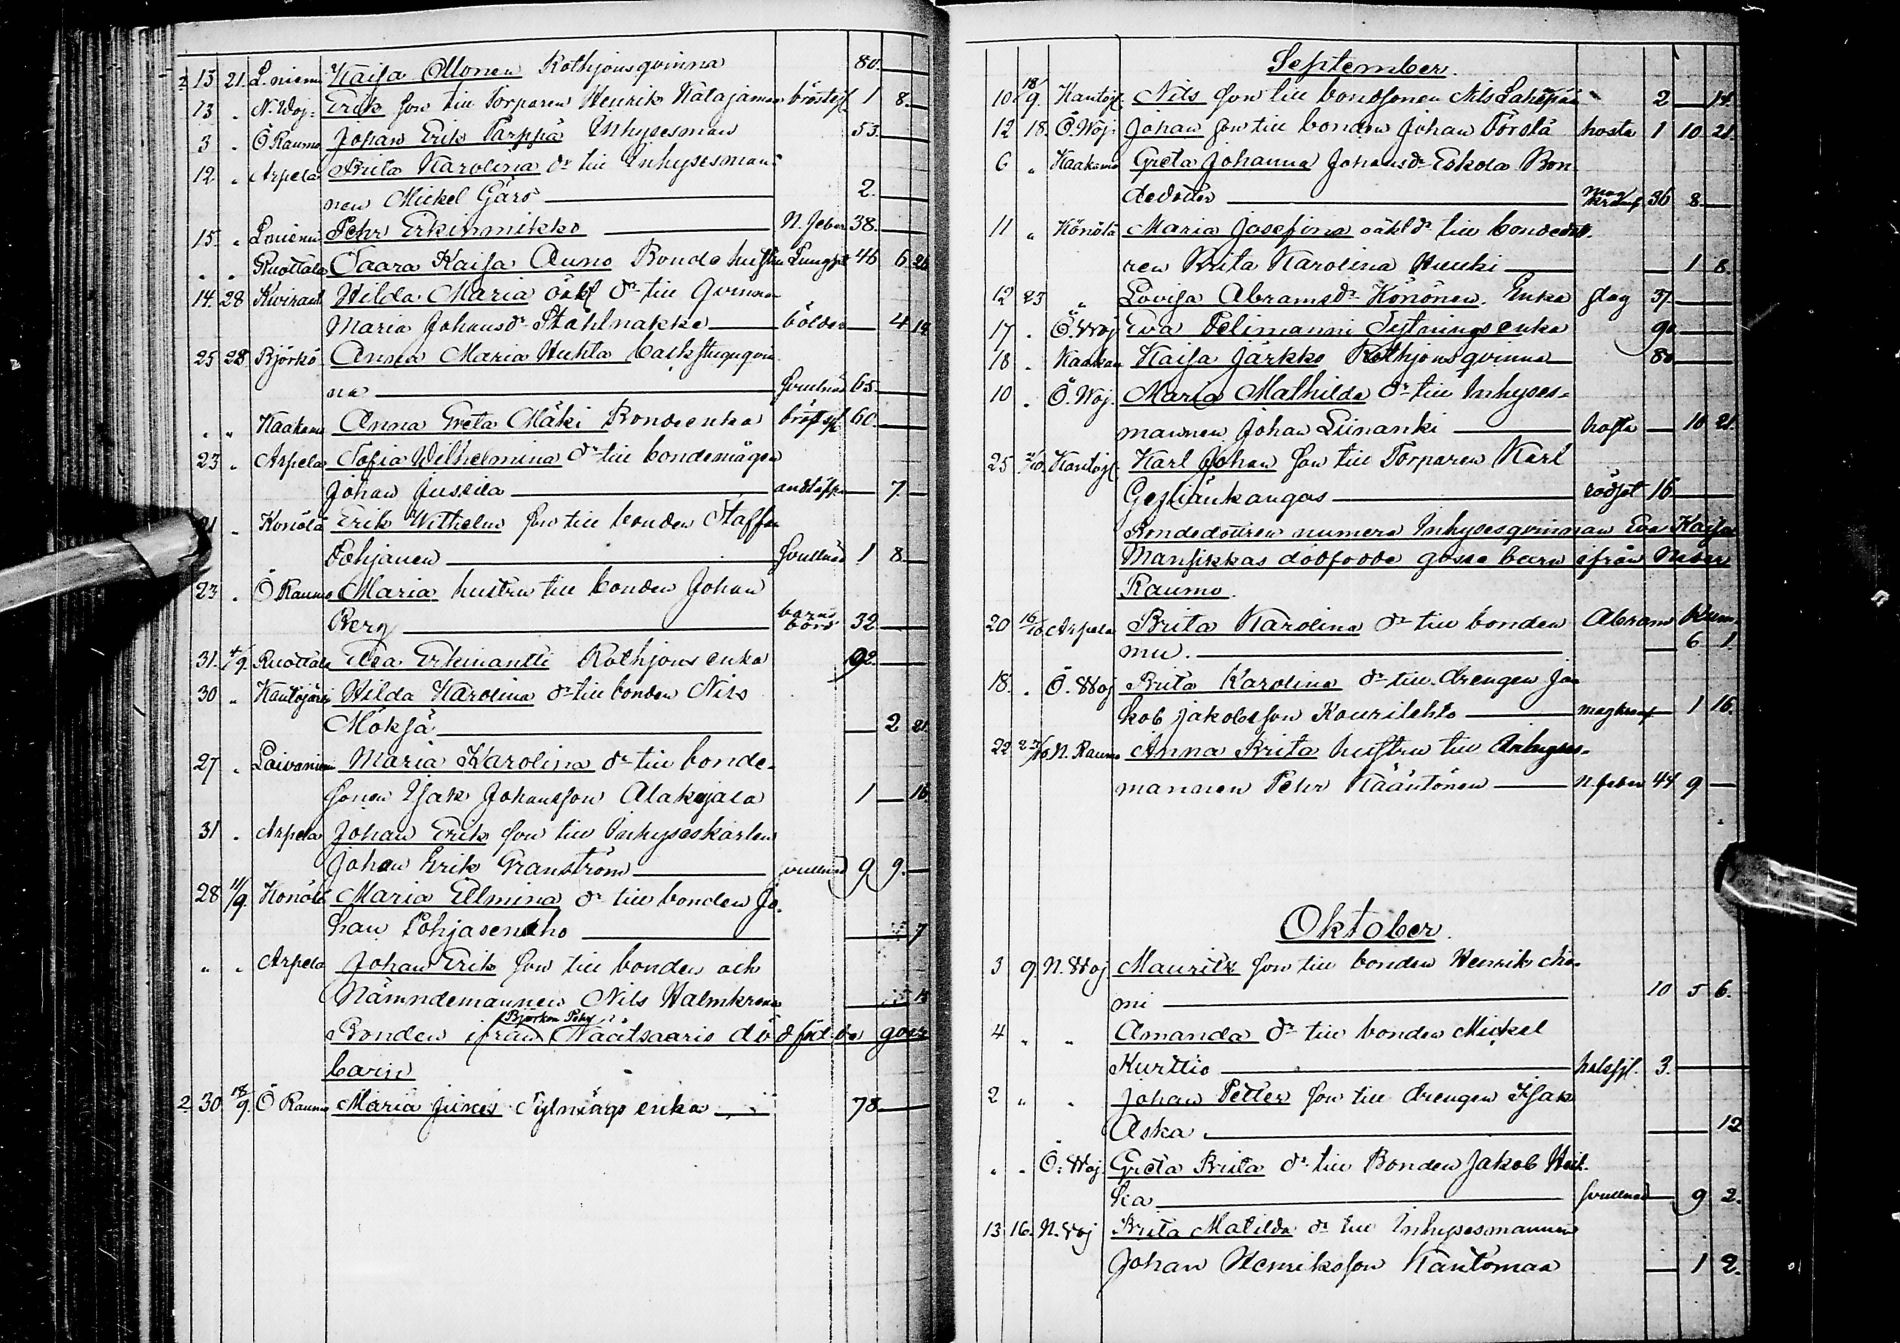 2 13 21. L. niemi Kaisa Ollonen Rothjonsqvinna 80.
13 " N. Woj: Erik son till Torparen Henrik Kalajamaa bröstsj 1 8.
3 " Ö Raumo Johan Erik Pärppä Inhysesman 53.
12 " Arpela Brita Karolina dr till Inhysesman-
nen Mickel Gärs 2.
15 " L.niemi Pehr Erkinmikko N. feber 38.
" " Ruottala Saara Kaisa Auno Bonde hustru Lungst 46 6 26
14. 28 Kiviranta Hilda Maria oäkt dr till qvinnan
Maria Johansdr Ståhlnakke bölder 4 14
25 28 Björkö Anna Maria Huhta backstuguqvin
na svullnad 65.
" " Kaakamo Anna Greta Mäki Bondeenka bröstsj. 60.
23 " Arpela Sofia Wilhelmina dr till bondemågen
Johan Jussila andtäppa 7.
21 " Könölä Erik Wilhelm son till bonden Staffan
Pohjanen svullnad 1 8.
23 " Ö Raumo Maria hustru till bonden Johan
Berg barns börd 32
31. 4/9. Ruottala Elsa Erkinantti Rothjons enka 92.
30 " Kantojärvi Hilda Karolina dr till bonden Nils
Mökjä 2 21.
27 " Laivaniemi Maria Karolina dr till bonde-
sonen Isak Johansson Alakujala 1 16.
31 " Arpela Johan Erik son till Inhyseskarlen
Johan Erik Granström svullnad 9 9.
28 11/9. Könölä Maria Ellmina dr till bonden Jo-
han Pohjasenaho 7
" " Arpela Johan Erik son till bonden och
Nämndemannen Nils Halmkrona 15
Björkön Pehr
Bonden ifrån Näätsaaris dödfödda gosse
barn
2 30. 18/9. Ö Raumo Maria Junes Sytnings enka 78
September.
10 18/9. Kantojf. Nils son till bondsonen Nils Lahenpää 2 14.
12 18. Ö. Woj. Johan son till bonden Johan Törölä hosta 1 10 21.
6 " Kaakamo Greta Johanna Johansdr Eskola Bon
dedoter mag kramp 36 8
11 " Könölä Maria Josefina oäkt dr till bondedot-
ren Brita Karolina Huuki 1 8.
12 23 " Lovisa Abramsdr Könönen. Enka slag 57.
17 . Ö. Woj Eva Pelimanni Sytnings enka 90.
18 . Kaakam Kaisa Järkkö Rothjonsqvinna 80
10 " Ö. Woj. Maria Mathilda dr till Inhyses-
mannen Johan Liinanki hosta 10 21.
25 2/10. Kantojf Karl Johan son till Torparen Karl
rödsot 16
Bondedottren numera Inhysesqvinnan Eva Kaisa
Mansikkas dödfödde gosse barn ifrån Neder
Raumo.
20 16/10 Arpela Brita Karolina dr till bonden Abram Kum-
mu. 6 1.
18. " Ö. Woj Brita Karolina dr till drengen Ja
kob Jakobsson Kourilehto magkramp 1 16.
22 23/10 N. Raumo Anna Brita hustru till Inhyses-
mannen Pehr Kääntönen N. feber 44 9
Oktober.
3 9 N. Woj Mauritz son till bonden Henrik Nie-
mi 10 5 6.
4 " " Amanda dr till bonden Mickel
Kurttio halssj. 3.
2 " " Johan Petter son till drengen Isak
Aska 12
" " Ö. Woj Greta Brita dr till Bonden Jakob Heik-
ka svullnad 9 2.
13 16. N. Woj Brita Matilda dr till Inhysesmannen
Johan Henriksson Kantomaa 1 2.